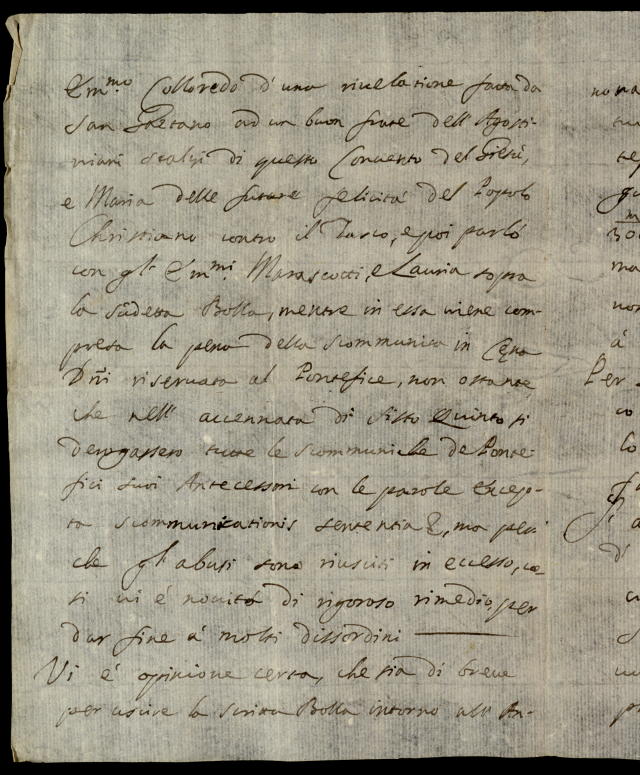 Em.mo Colloredo d'una riuelatione fatta da
San Gaetano ad un buon frate dell'Agosti-
niani scalzi di questo Conuento del Giesù,
e Maria delle future felicità del Popolo
Christiano contro il Turco, e poi parlò
con gl'Em.mi Marascotti, e Lauria sopra
la sudetta Bolla, mentre in essa viene com-
presa la pena della scommunica in Cęna
Dñi riseruata al Pontefice, non ostante
che nell'accennata di Sisto Quinto si
derogassero tutte le scommuniche de Ponte-
fici suoi Antecessori con le parole Excep-
ta scommunicationis sententia &, ma per-
che gl'abusi sono riusciti in eccesso, co-
si ui è nouità di rigoroso rimedio per
dar fine à molti dissordini
Vi è opinione certa, che sia di breue
per uscire la scritta Bolla intorno all'An-